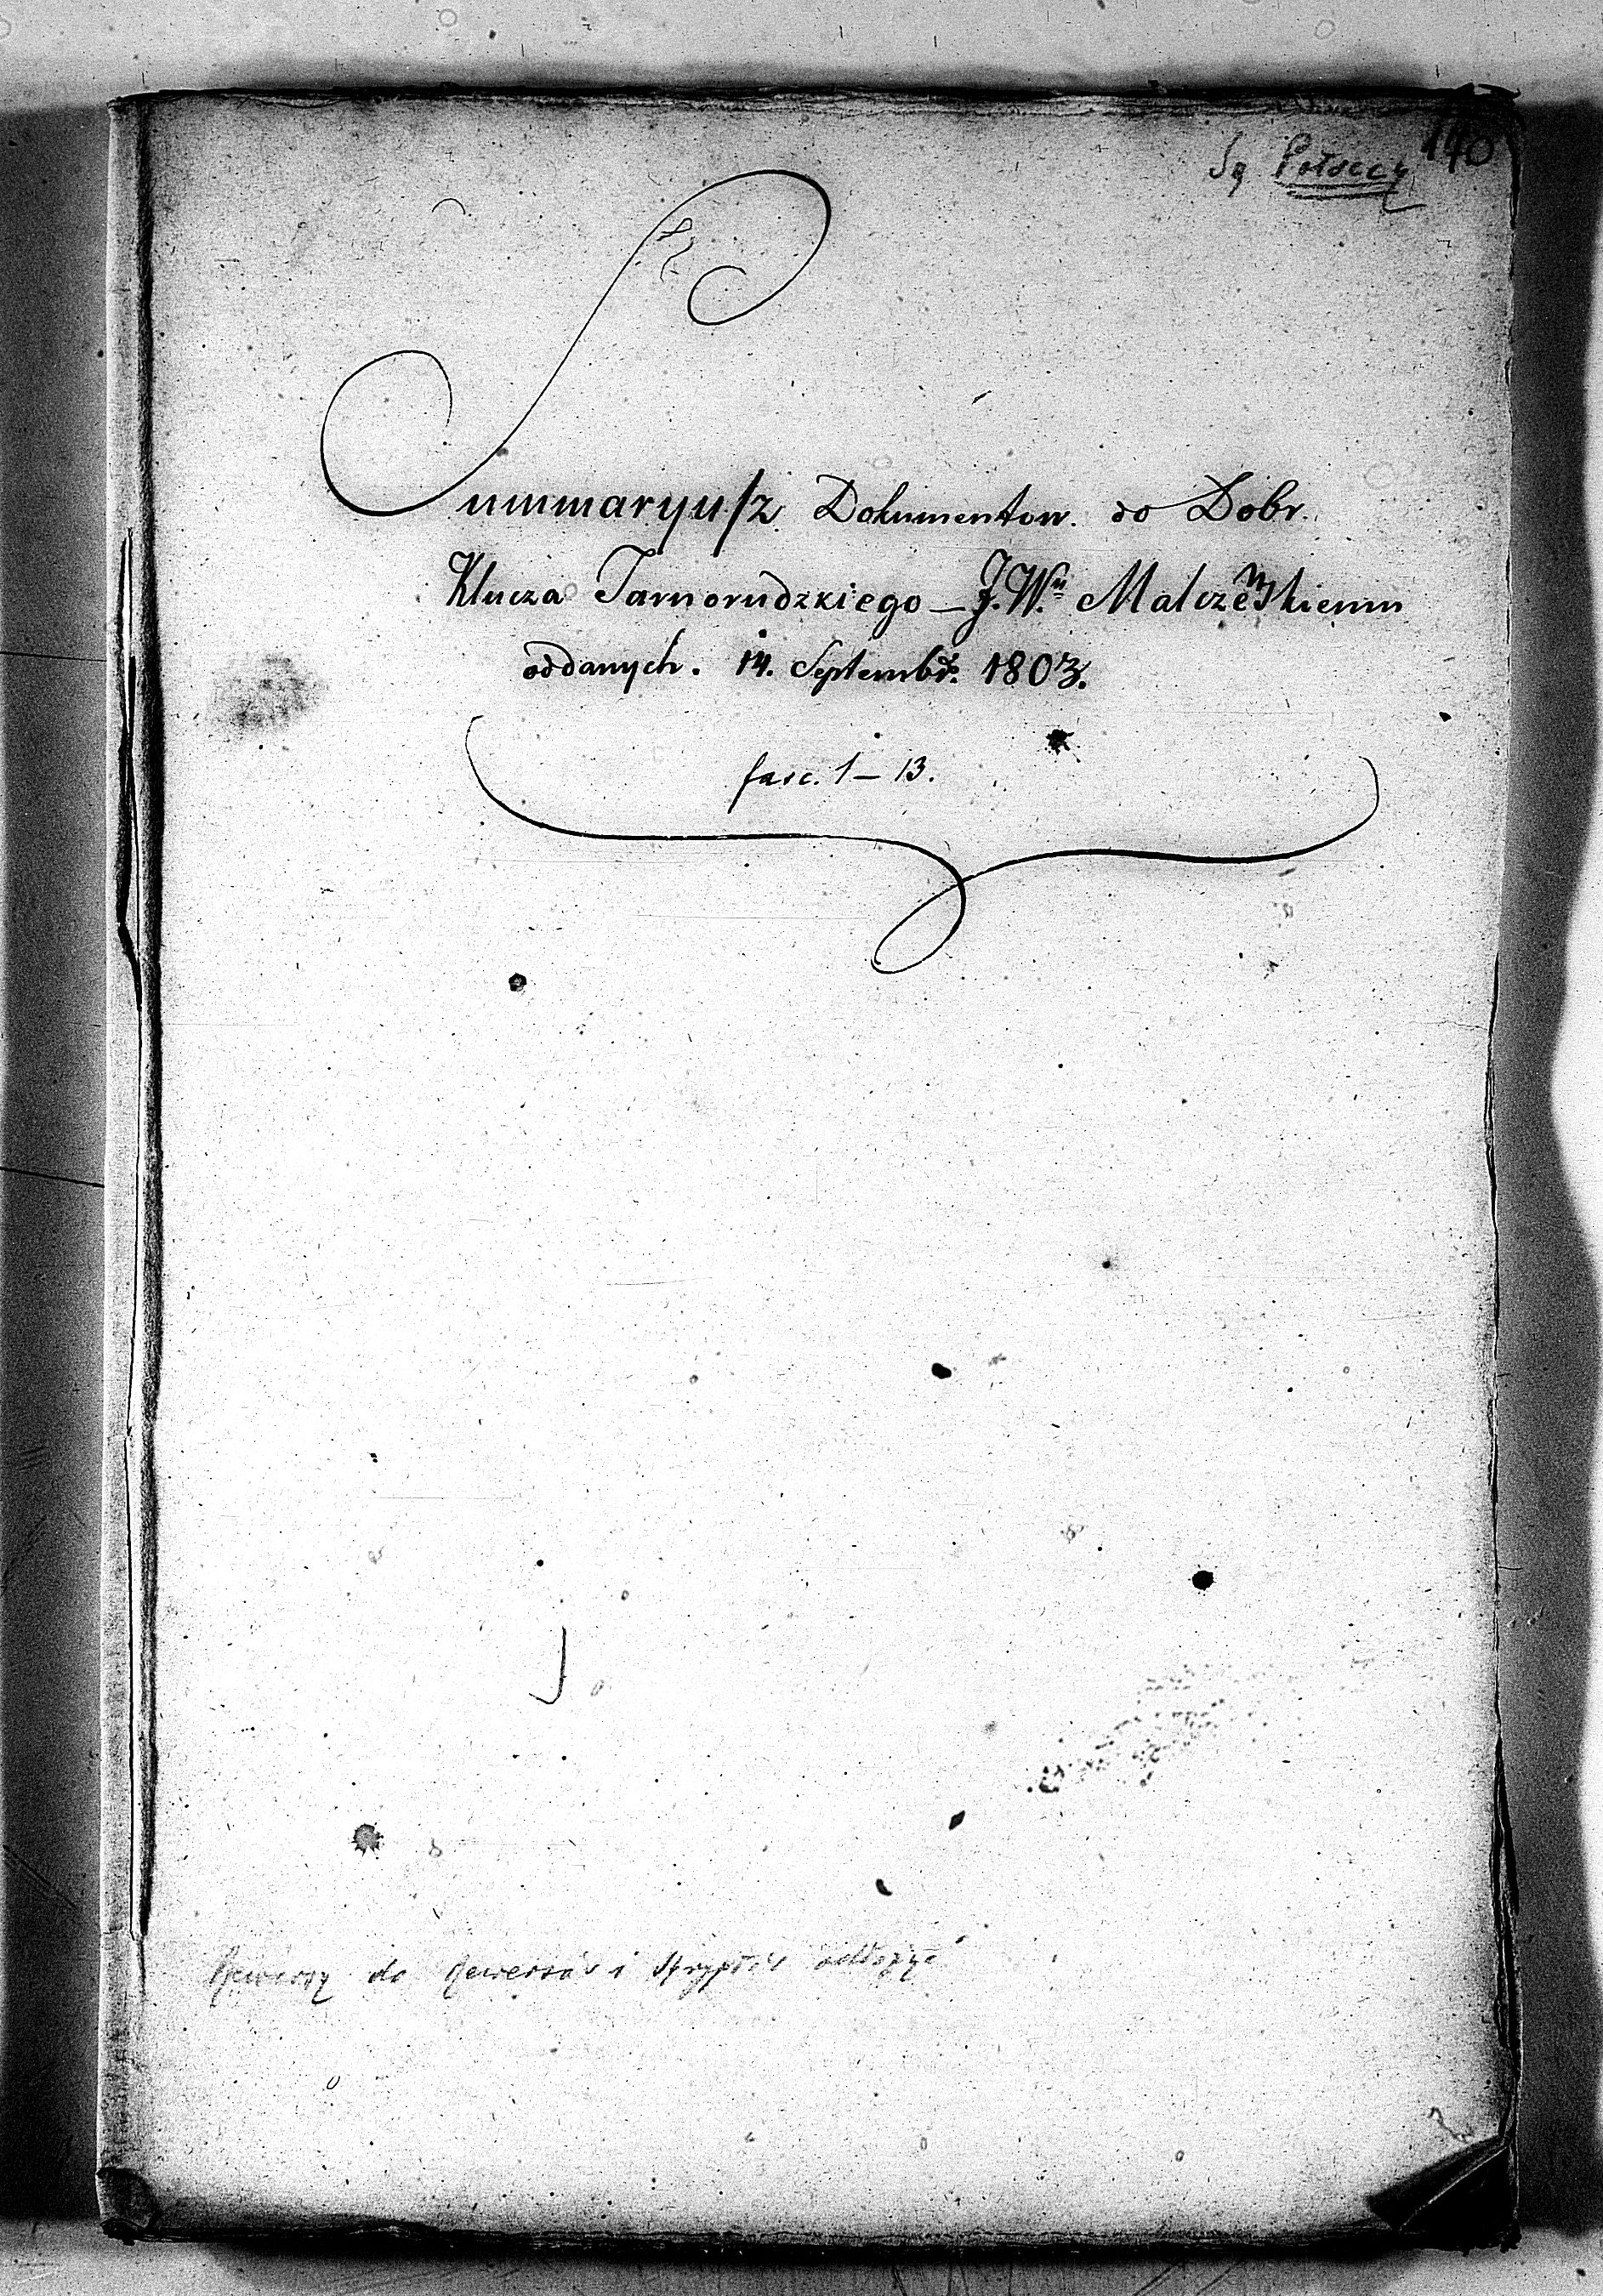 140
Są Potoccy
Summaryusz Dokumentow do Dobr.
Klucza Tarnorudzkiego – J. W.u Malczewskiemu
oddanych. 14. Septembr. 1803.
fasc. 1 – 13.
Rewersy do Rewersów i Skryptów odłożyć